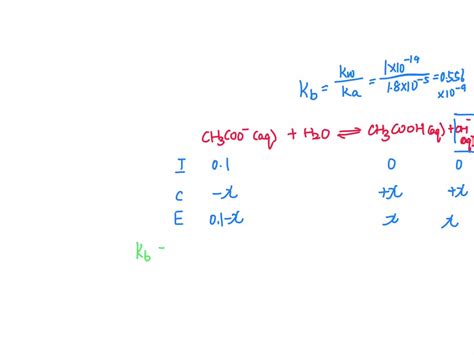 Kb = Kw/Ka = 1×10⁻¹⁴/1.8×10⁻⁵ = 0.556 ×10⁻⁹
CH3COO⁻(aq) + H2O ⇌ CH3COOH(aq) + OH⁻ aq
I 0.1 0 0
C -x +x +x
E 0.1-x x x
Kb =